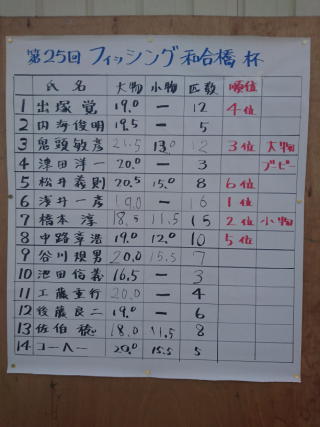 第25回 フィッシング和合橋 杯
氏名 大物 小物 匹数 順位
1 出塚 覚 19.0 ー 12 4位
2 内海俊明 19.5 ー 5
3 鬼頭敏彦 21.5 13.0 12 3位 大物
4 津田洋一 20.0 ー 3 ブービー
5 松井義則 20.5 15.0 8 6位
6 浅井一彦 19.0 ー 16 1位
7 橋本 淳 18.5 11.5 15 2位 小物
8 中路幸浩 19.0 12.0 10 5位
9 谷川規男 20.0 15.5 7
10 池田信義 16.5 ー 3
11 工藤重行 20.0 ー 4
12 後藤良二 19.0 ー 6
13 佐伯 穂 18.0 11.5 8
14 コーヘー 20.0 15.5 5